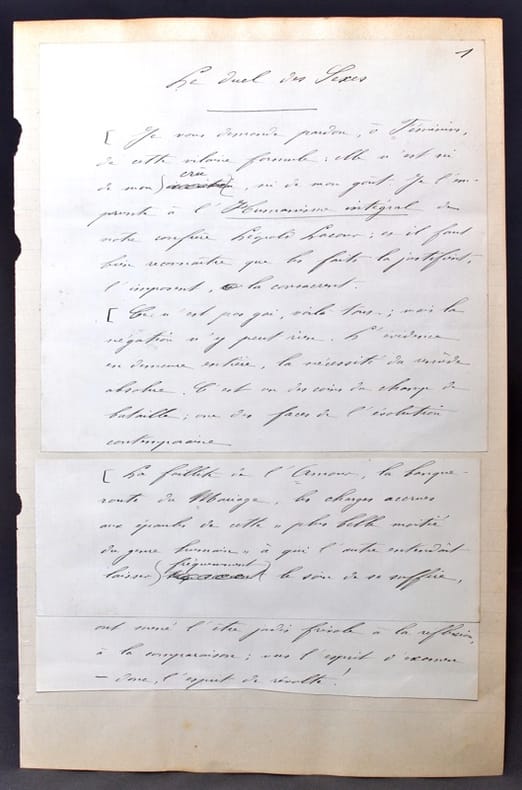 1
Le duel des Sexes
[ Je vous demande pardon, ô Féminins,
de cette vilaine formule : elle n'est ni
de mon crû, ni de mon goût. Je l'em-
prunte à l'Humanisme intégral de
notre confrère Léopold Lacour ; et il faut
bien reconnaître que les faits la justifient,
l'imposent, la consacrent.
[ Ce n'est pas gai, voilà tout ; mais la
négation n'y peut rien. L'évidence
en demeure entière, la nécessité du remède
absolue. C'est un des coins du champ de
bataille ; une des faces de l'évolution
contemporaine
[ La faillite de l'Amour, la banque-
route du Mariage, les charges accrues
aux épaules de cette « plus belle moitié
du genre humain » à qui l'autre entendait
laisser fréquemment le soin de se suffire,
ont mené l'être jadis frivole à la réflexion,
à la comparaison ; vers l'esprit d'examen
— donc, l'esprit de révolte !